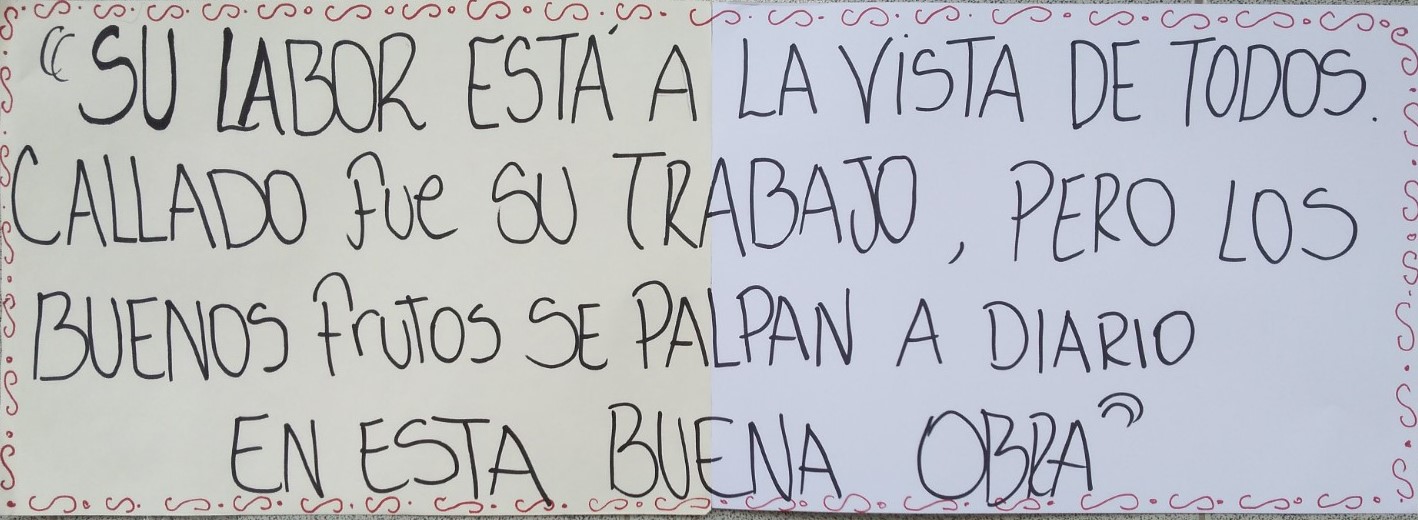 "SU LABOR ESTÁ A LA VISTA DE TODOS.
CALLADO fue SU TRABAJO, PERO LOS
BUENOS frutos SE PALPAN A DIARIO
EN ESTA BUENA OBRA"